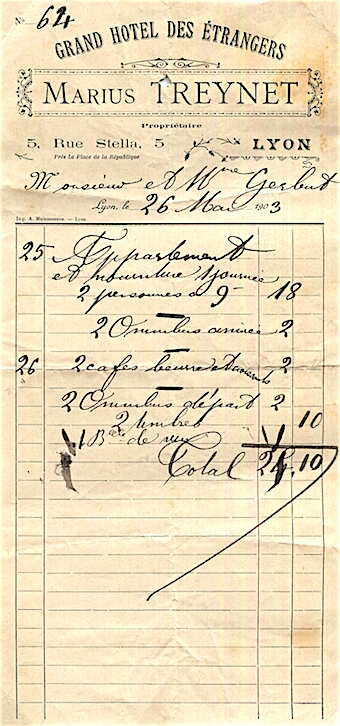 No 64
GRAND HOTEL DES ÉTRANGERS
MARIUS TREYNET
Propriétaire
5, Rue Stella, 5 LYON
Près la Place de la République
Monsieur et Mme Gerbert
Lyon, le 26 Mai 1903
Imp. A. Maisonneuve. — Lyon.
25 Appartement
et nourriture 1 journée
2 personnes à 9- 18
2 Omnibus arrivée 2
26 2 cafés beurre et 2
2 Omnibus départ 2
2 timbres 10
1 Blle de
Total 24.10